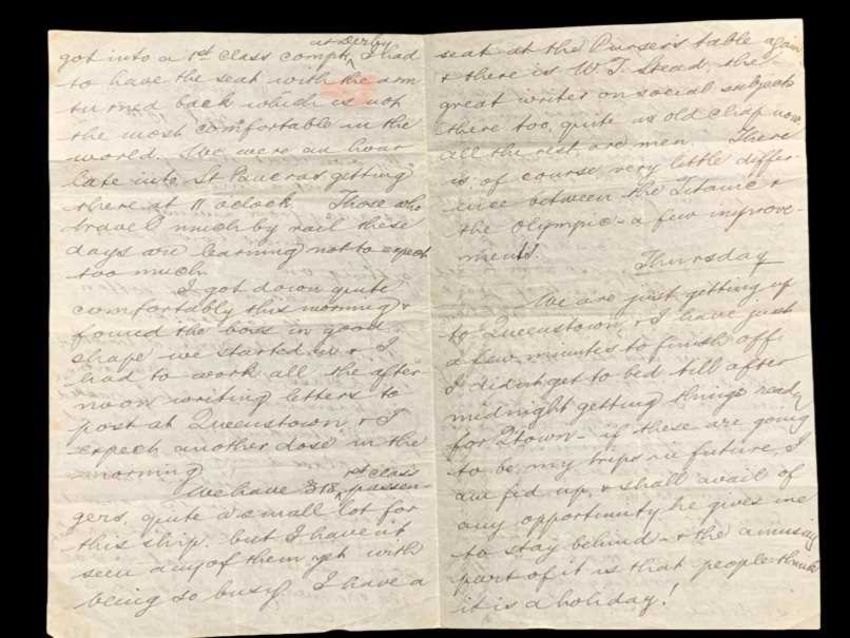 got into a 1st class compt, at Derby I had
to have the seat with the arm
turned back which is not
the most comfortable in the
world. We were an hour
late into St Pancras getting
there at 11 oclock Those who
travel much by rail these
days are learning not to expect
too much.
I got down quite
comfortably this morning &
found the boss in good
shape we started in & I
had to work all the after-
noon writing letters to
post at Queenstown, & I
expect another dose in the
morning
We have 318 1st class passen-
gers, quite a small lot for
this ship. but I haven't
seen any of them yet with
being so busy. I have a
seat at the Purser's table again
& there is W. T. Stead, the
great writer on social subjects
there too, quite an old chap now
all the rest are men. There
is, of course, very little differ-
ence between the Titanic &
the Olympic - a few improve-
ments.
Thursday
We are just getting up
to Queenstown, & I have just
a few minutes to finish off.
I didnt get to bed till after
midnight getting things ready
for Qtown - if these are going
to be my trips in future, I
am fed up, & shall avail of
any opportunity he gives me
to stay behind - & the amusing
part of it is that people think
it is a holiday!